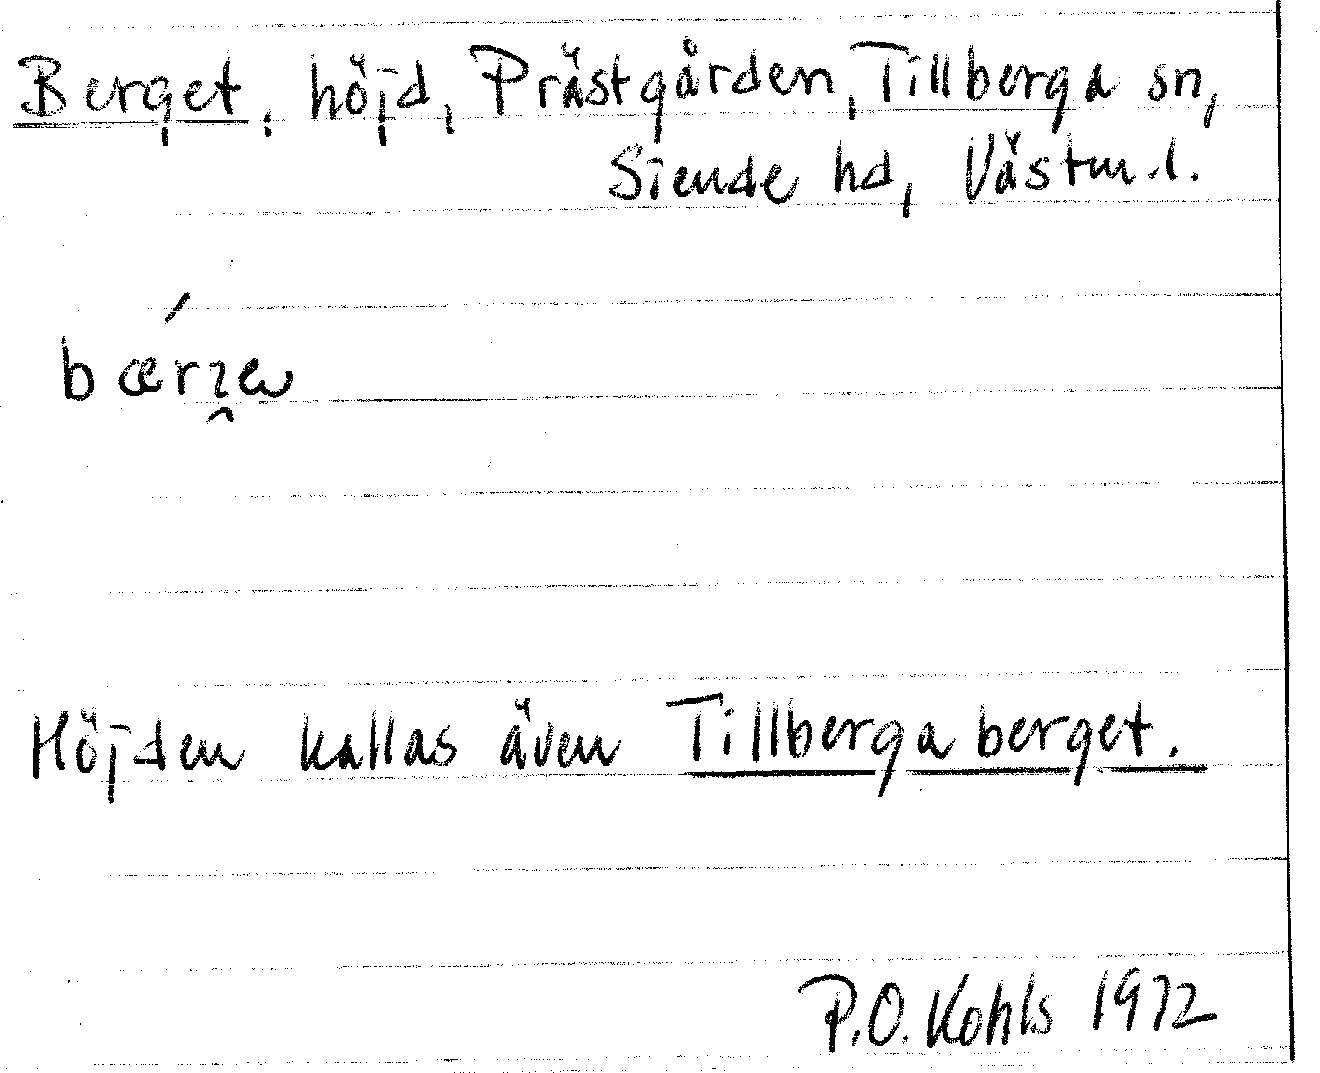 Berget, höjd, Prästgården, Tillberga sn,
Siende hd, Västm.l.
Höjden kallas även Tillbergaberget.
P.O. Kohls 1972